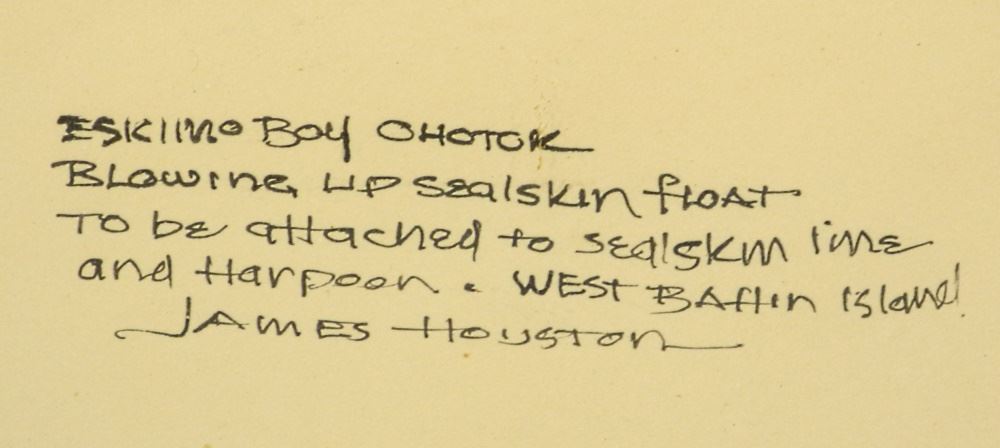 ESKIMO BOY OHOTOK
BLOWING UP Sealskin float
TO be attached to sealskin line
and Harpoon. WEST BAffin Island
JAMES HOUSTON